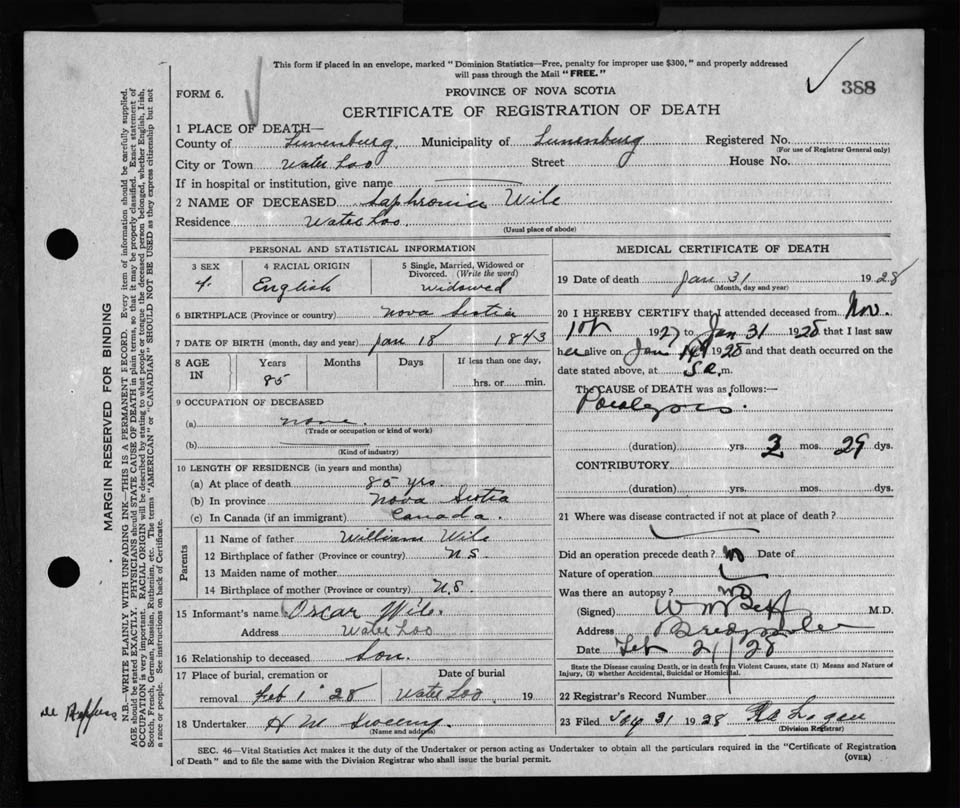 This form if placed in an envelope, marked "Dominion Statistics—Free, penalty for improper use $300," and properly addressed
will pass through the Mail "FREE."
388
FORM 6.
PROVINCE OF NOVA SCOTIA
CERTIFICATE OF REGISTRATION OF DEATH
1 PLACE OF DEATH—
County of Lunenburg Municipality of Lunenburg Registered No.
(For use of Registrar General only)
City or Town Water Loo Street House No.
If in hospital or institution, give name
2 NAME OF DECEASED Saphronia Wile
Residence Water Loo
(Usual place of abode)
PERSONAL AND STATISTICAL INFORMATION
3 SEX 4 RACIAL ORIGIN 5 Single, Married, Widowed or
Divorced. (Write the word)
f. English widowed
6 BIRTHPLACE (Province or country) Nova Scotia
7 DATE OF BIRTH (month, day and year) Jan 18 1843
8 AGE IN Years Months Days If less than one day,
85 hrs. or min.
9 OCCUPATION OF DECEASED
(a) none.
(Trade or occupation or kind of work)
(b)
(Kind of industry)
10 LENGTH OF RESIDENCE (in years and months)
(a) At place of death 85 yrs.
(b) In province Nova Scotia
(c) In Canada (if an immigrant) Canada.
Parents
11 Name of father William Wile
12 Birthplace of father (Province or country) N.S.
13 Maiden name of mother
14 Birthplace of mother (Province or country) N.S.
15 Informant's name Oscar Wile
Address Water Loo
16 Relationship to deceased Son.
17 Place of burial, cremation or Date of burial
removal Feb 1 '28 Water Loo 19
18 Undertaker H M
(Name and address)
MEDICAL CERTIFICATE OF DEATH
19 Date of death Jan 31 1928
(Month, day and year)
20 I HEREBY CERTIFY that I attended deceased from Nov.
1927 to Jan 31 1928 that I last saw
her alive on Jan 1928 and that death occurred on the
date stated above, at 5 a.m.
The CAUSE of DEATH was as follows:—
Paralysis.
(duration) yrs. 2 mos. 29 dys.
CONTRIBUTORY
(duration) yrs. mos. dys.
21 Where was disease contracted if not at place of death?
Did an operation precede death? no Date of
Nature of operation
Was there an autopsy? no
(Signed) M.D.
Address
Date Feb 2/28
State the Disease causing Death, or in death from Violent Causes, state (1) Means and Nature of
Injury, (2) whether Accidental, Suicidal or Homicidal.
22 Registrar's Record Number
23 Filed 1928
(Division Registrar)
SEC. 46—Vital Statistics Act makes it the duty of the Undertaker or person acting as Undertaker to obtain all the particulars required in the "Certificate of Registration
of Death" and to file the same with the Division Registrar who shall issue the burial permit.
(OVER)
MARGIN RESERVED FOR BINDING
N.B.—WRITE PLAINLY WITH UNFADING INK—THIS IS A PERMANENT RECORD. Every item of information should be carefully supplied.
AGE should be stated EXACTLY. PHYSICIANS should STATE CAUSE OF DEATH in plain terms, so that it may be properly classified. Exact statement of
OCCUPATION is very important. RACIAL ORIGIN will be described by stating to what people or tongue the deceased person belonged, whether English, Irish,
Scotch, French, German, Russian, Ruthenian, etc. The terms "AMERICAN" or "CANADIAN" SHOULD NOT BE USED as they express citizenship but not
a race or people. See instructions on back of Certificate.